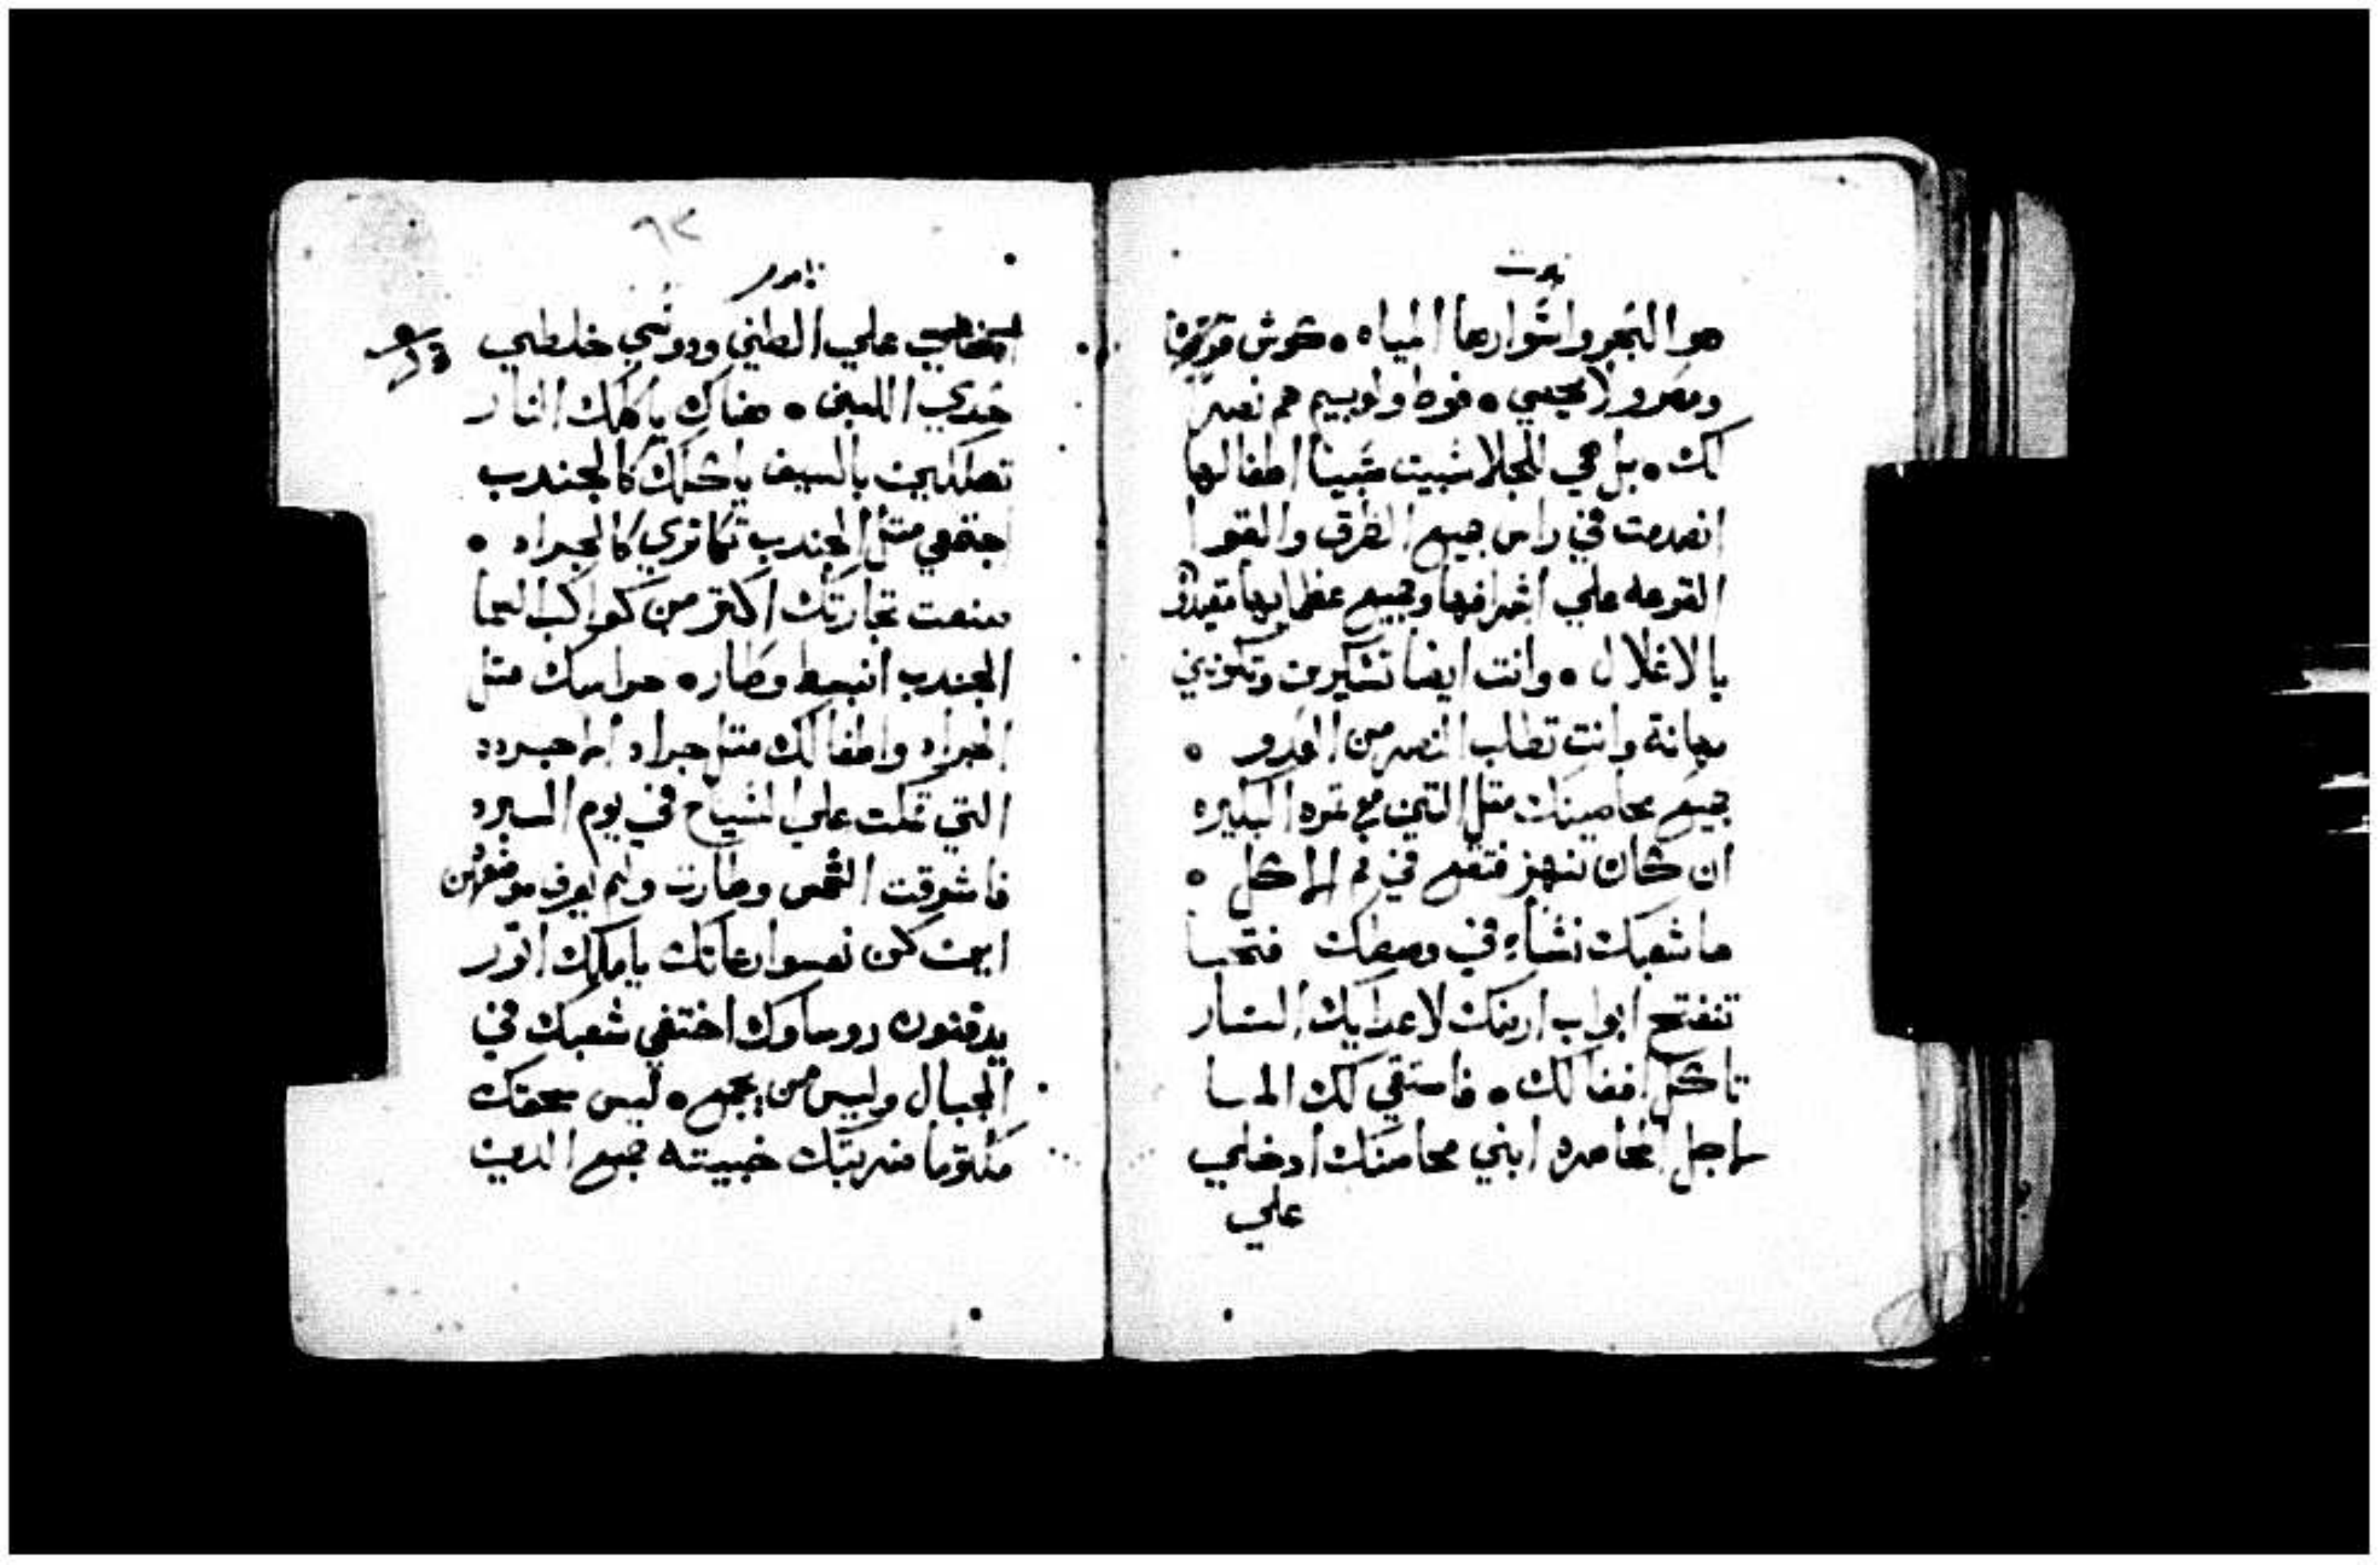 نبوت
هو البحر واسوارها المياه • كوش قوتها
ومصر ولا يحصي • فوط ولوبييم هم نصر
لك • بل هي للجلا سبيت سبيا اطفالها
انصدمت في راس جميع الطرق والقوا
القرعه علي اشرافها وجميع عظمايها تقيدوا
بالاغلال • وانت ايضا تسكرين وتكوني
مهانة وانت تطلب النصر من العدو •
جميع محاصينك مثل التين مع ثمره البكيره
ان كان تنهز فتقع في فم الاكل •
ها شعبك نساء في وسطك فتحا
تنفتح ابواب ارضك لاعدايك النار
تاكل اقفالك • فاستقي لك الما
لاجل المحاصره ابني محاصنك ادخلي
علي
٩٢
ناحوم
علي الطين ودوسي خلطي
خدي اللبن • هناك ياكلك النار
تهلكين بالسيف ياكلك كالجندب
اجتمعي مثل الجندب تكاثري كالجراد •
صنعت تجارتك اكثر من كواكب السما
الجندب انبسط وطار • حراسك مثل
الجراد واطفالك مثل جراد الجراد
التي تمكث علي السياج في يوم البرد
فاشرقت الشمس وطارت ولم يعرف موضعهن
اين كن نعسوا رعاتك يا ملك اتور
يدفنون روساوك اختفي شعبك في
الجبال وليس من يجمع • ليس سحقك
مكتوما ضربتك خبيثه جميع الدين